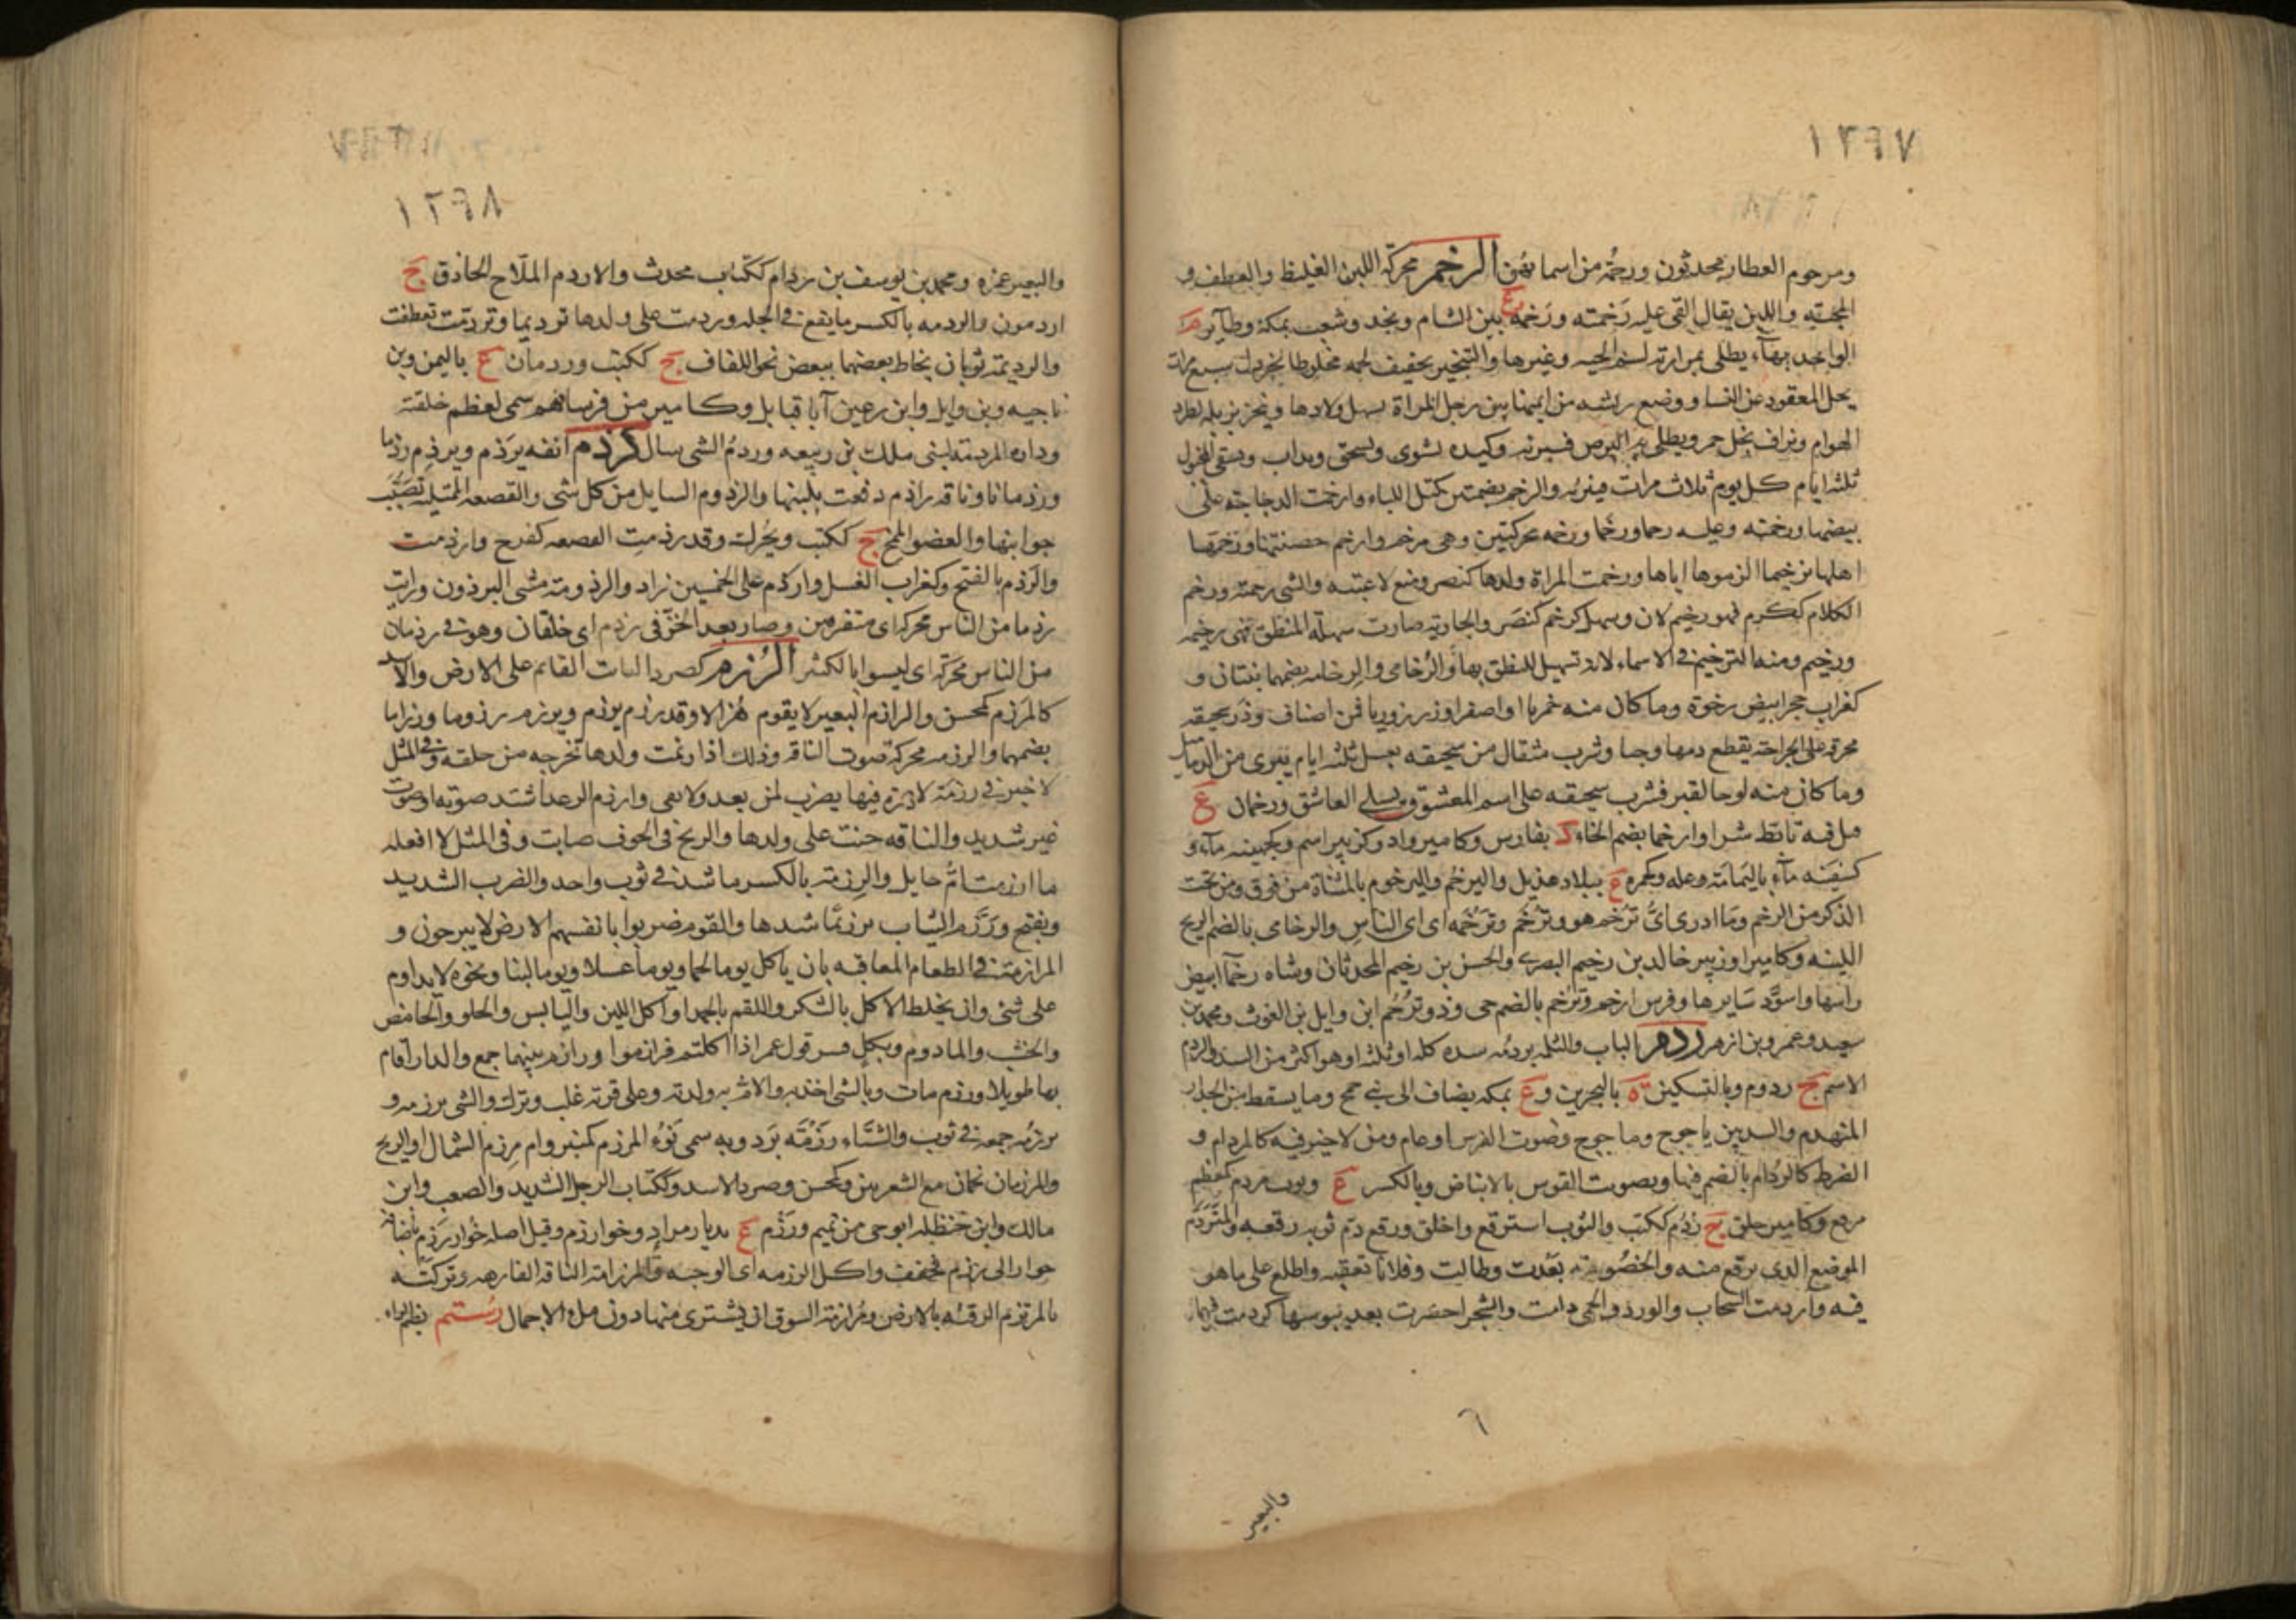 ١٢٦٧
ومرحوم العطار محدثون ورحمة من اسمائهن الرخم محركة اللبن الغليظ والعطف و
المحبة واللين يقال القى عليه رخمته ورخمه ع بين الشام ونجد وشعب بمكة وطاير م
الواحد بهاء يطلى بمرارته لسم الحية وغيرها والتبخير بجفيف لحمه مخلوطا بخردل سبع مرات
يحل المعقود عن النسا ووضع ريشه من ايمنها بين رجلى المراة يسهل ولادها ويبخر بزبله لطرد
الهوام ويداف بخل خمر ويطلى به البرص فيغيره وكبده تشوى وتسحق وتداف وتسقى المخبول
ثلثة ايام كل يوم ثلاث مرات فيبرئه والرخم بضمتين كتل اللباء وارخمت الدجاجة على
بيضها ورخمته وعليه رخما ورخما ورخمه محركتين وهى مرخم وارخم حضنتها ورخمها
اهلها ترخيما الزموها اياها ورخمت المراة ولدها كنصر ومنع لاعبته والشى رحمته ورخم
الكلام ككرم فهو رخيم لان وسهل كرخم كنصر والجارية صارت سهلة المنطق فهى رخيمه
ورخيم ومنه الترخيم فى الاسماء لانه تسهيل للنطق بها والرخامى والرخامه بضمهما نبتان و
كغراب حجر ابيض رخو وما كان منه خمريا او اصفر او زرزوريا فمن اصناف وذر سحيقه
محرقة على الجراحة يقطع دمها وحيا وشرب مثقال من سحيقه بعسل ثلثة ايام يبرى من الدماميل
وما كان منه لوحا لقبر فشرب سحيقه على اسم المعشوق يسلى العاشق ورخمان ع
قتل فيه تابط شرا وارخما بضم الخاء د بفارس وكامير واد وكزبير اسم وكجهينه ماء و
كسفينه ماء باليمامة وعله وكحمره ع ببلاد هذيل واليرخم واليرخوم بالمثناة من فوق ومن تحت
الذكر من الرخم وما ادرى اى ترخم هو وترخم وترخمه اى اى الناس والرخامى بالضم الريح
اللينه وكامير او زبير خالد بن رخيم البصرى والحسن بن رخيم المحدثان وشاه رخما ابيض
راسها واسود سايرها وفرس ارخم وترخم بالضم حى وذو ترخم ابن وايل بن الغوث ومحمد بن
سعيد وعمرو بن ازهر ردم الباب والثلمه يردمه سده كله او ثلثه او هو اكثر من السد والردم
الاسم ج ردوم وبالتسكين ة بالبحرين و ع بمكه يضاف الى بنى جمح وما يسقط من الجدار
المنهدم والسد بين ياجوج وماجوج وصوت القوس او عام ومن لا خير فيه كالمردام و
الضرط كالردام بالضم فيهما وتصويت القوس بالانباض وبالكسر ع وثوب مردم كمعظم
مرقع وكامير خلق ج ردم ككتب والثوب استرقع واخلق ورقع ردم ثوبه رقعه والمتردم
الموضع الذى يرقع منه والخصومة بعدت وطالت وفلانا تعقبه واطلع على ما هو
فيه واردمت السحاب والورد والحمى دامت والشجر اخضرت بعد يبوسها كردمت فيهما
٦
والبعير
١٢٦٨
والبعير غمزه ومحمد بن يوسف بن ردام ككتاب محدث والاردم الملاح الحاذق ج
اردمون والردمه بالكسر ما يبقى فى الجله وردمت على ولدها ترديما وتردمت تعطفت
والرديمة ثوبان يخاط بعضهما ببعض نحو اللفاف ج ككتب وردمان ع باليمن وبن
ناجيه وبن وايل وابن رعين آباء قبايل وكامير من فرسانهم سمى لعظم خلقته
ودارة المردمة لبنى مالك بن ربيعه وردم الشى سال رذم انفه يرذم ويرذم رذما
ورذمانا وناقة راذم دفعت بلبنها والرذوم السايل من كل شى والقصعه الممتليه تصبب
جوانبها والعضو الممخ ج ككتب ويحرك وقد رذمت القصعه كفرح وارذمت
والرذم بالفتح وكغراب الفسل وارذم على الخمسين زاد والرذومة مشى البرذون ورايت
رذما من الناس محركة اى متفرقين وصار بعد الخز فى رذم اى خلقان وهو فى رذمان
من الناس محركة اى ليسوا بالكثير الرزم كصرد الثابت القائم على الارض والاسد
كالمرزم كمحسن والرازم البعير لا يقوم هزالا وقد رزم يرزم ويرزم رزوما ورزاما
بضمهما والرزمه محركة صوت الناقة وذلك اذا رئمت ولدها تخرجه من حلقه وفى المثل
لا خير فى رزمة لا درة فيها يضرب لمن يعد ولا يفى وارزم الرعد اشتد صوته او صوت
غير شديد والناقه حنت على ولدها والريح فى الجوف صاتت وفى المثل لا افعله
ما ارزمت ام حايل والرزمة بالكسر ما شد فى ثوب واحد والضرب الشديد
ويفتح ورزم الثياب ترزيما شدها والقوم ضربوا بانفسهم الارض لا يبرحون و
المرازمة فى الطعام المعاقبه بان ياكل يوما لحما ويوما عسلا ويوما لبنا ونحوه لا يداوم
على شى وان يخلط الاكل بالشكر واللقم بالحمد او اكل اللين واليابس والحلو والحامض
والجشب والمادوم وبكل فسر قول عمر اذا اكلتم فرازموا ورازم بينهما جمع والدار اقام
بها طويلا ورزم مات وبالشى اخذ به والام به ولدته وعلى قرنه غلب وبرك والشى يرزمه و
يرزمه جمعه فى ثوب والشتاء رزمة برد وبه سمى نوء المرزم كمنبر وام مرزم الشمال او الريح
والمرزمان نجمان مع الشعريين وكمحسن وصرد الاسد وككتاب الرجل الشديد والصعب وابن
مالك وابن حنظلة ابو حى من تميم ورزم ع بديار مراد وخوارزم وقيل اصله خوار رزم باضافة
خوار الى رزم فخفف واكل الرزمه اى الوجبه والمرزامة الناقه الفارهه وتركته
بالمرتزم الزقته بالارض ومرازمة السوق ان يشترى منها دون ملء الاحمال رستم بضم الراء